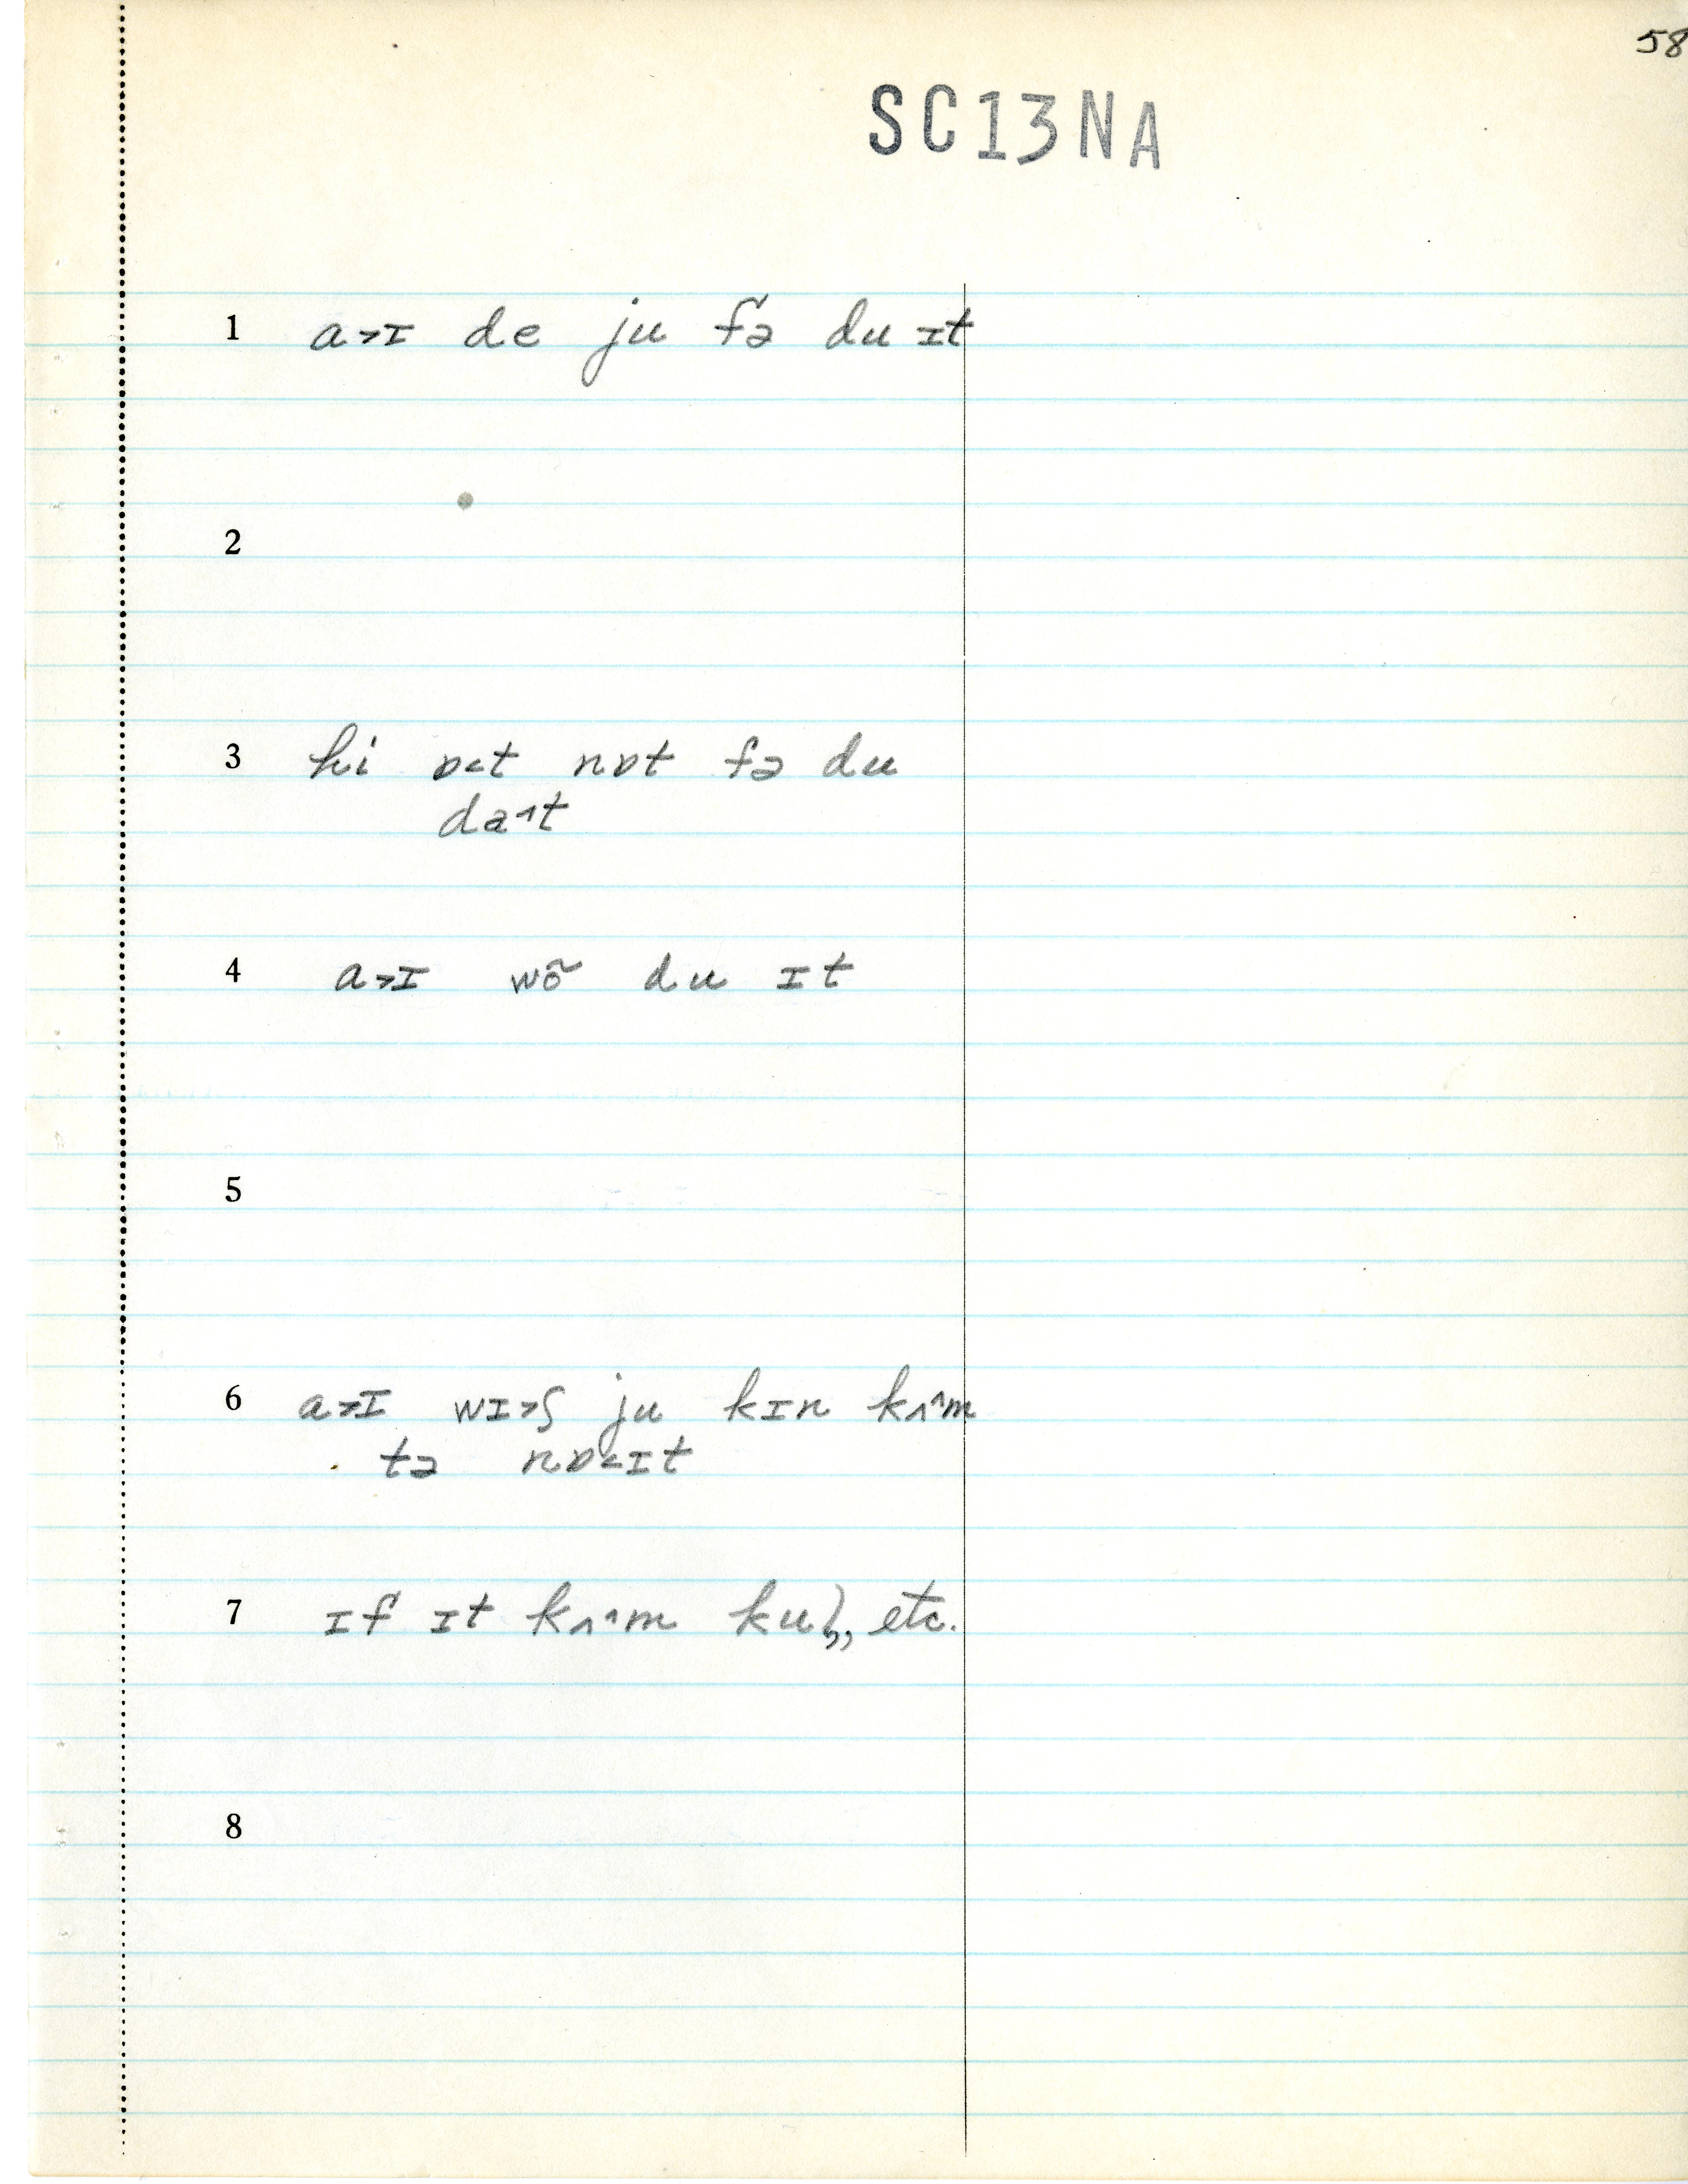 58
SC13NA
1 a˃ɪ de ju fə du ɪt
2
3 hi ɒ˂t nɒt fə du
da˄t
4 a˃ɪ wõ du ɪt
5
6 a˃ɪ wɪ˃ʃ ju kɪn kʌ˄m
tə nɒ˂ɪt
7 ɪf ɪt kʌ˄m ku , etc.
8